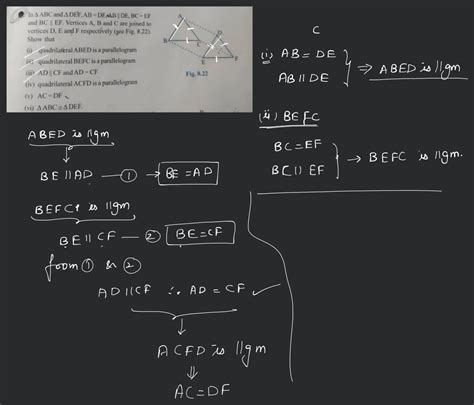 In Δ ABC and Δ DEF, AB = DE, AB || DE, BC = EF
and BC || EF. Vertices A, B and C are joined to
vertices D, E and F respectively (see Fig. 8.22).
Show that
(i) quadrilateral ABED is a parallelogram
(ii) quadrilateral BEFC is a parallelogram
(iii) AD || CF and AD = CF
(iv) quadrilateral ACFD is a parallelogram
(v) AC = DF
(vi) Δ ABC ≅ Δ DEF.
A
D
B
C
E
F
Fig. 8.22
C
(i) AB = DE
AB || DE
⇒ ABED is ||gm
(ii) BEFC
BC = EF
BC || EF
⇒ BEFC is ||gm.
ABED is ||gm
BE || AD — ① → BE = AD
BEFC is ||gm
BE || CF — ② BE = CF
from ① & ②
AD || CF ∴ AD = CF ✓
ACFD is ||gm
⇓
AC = DF